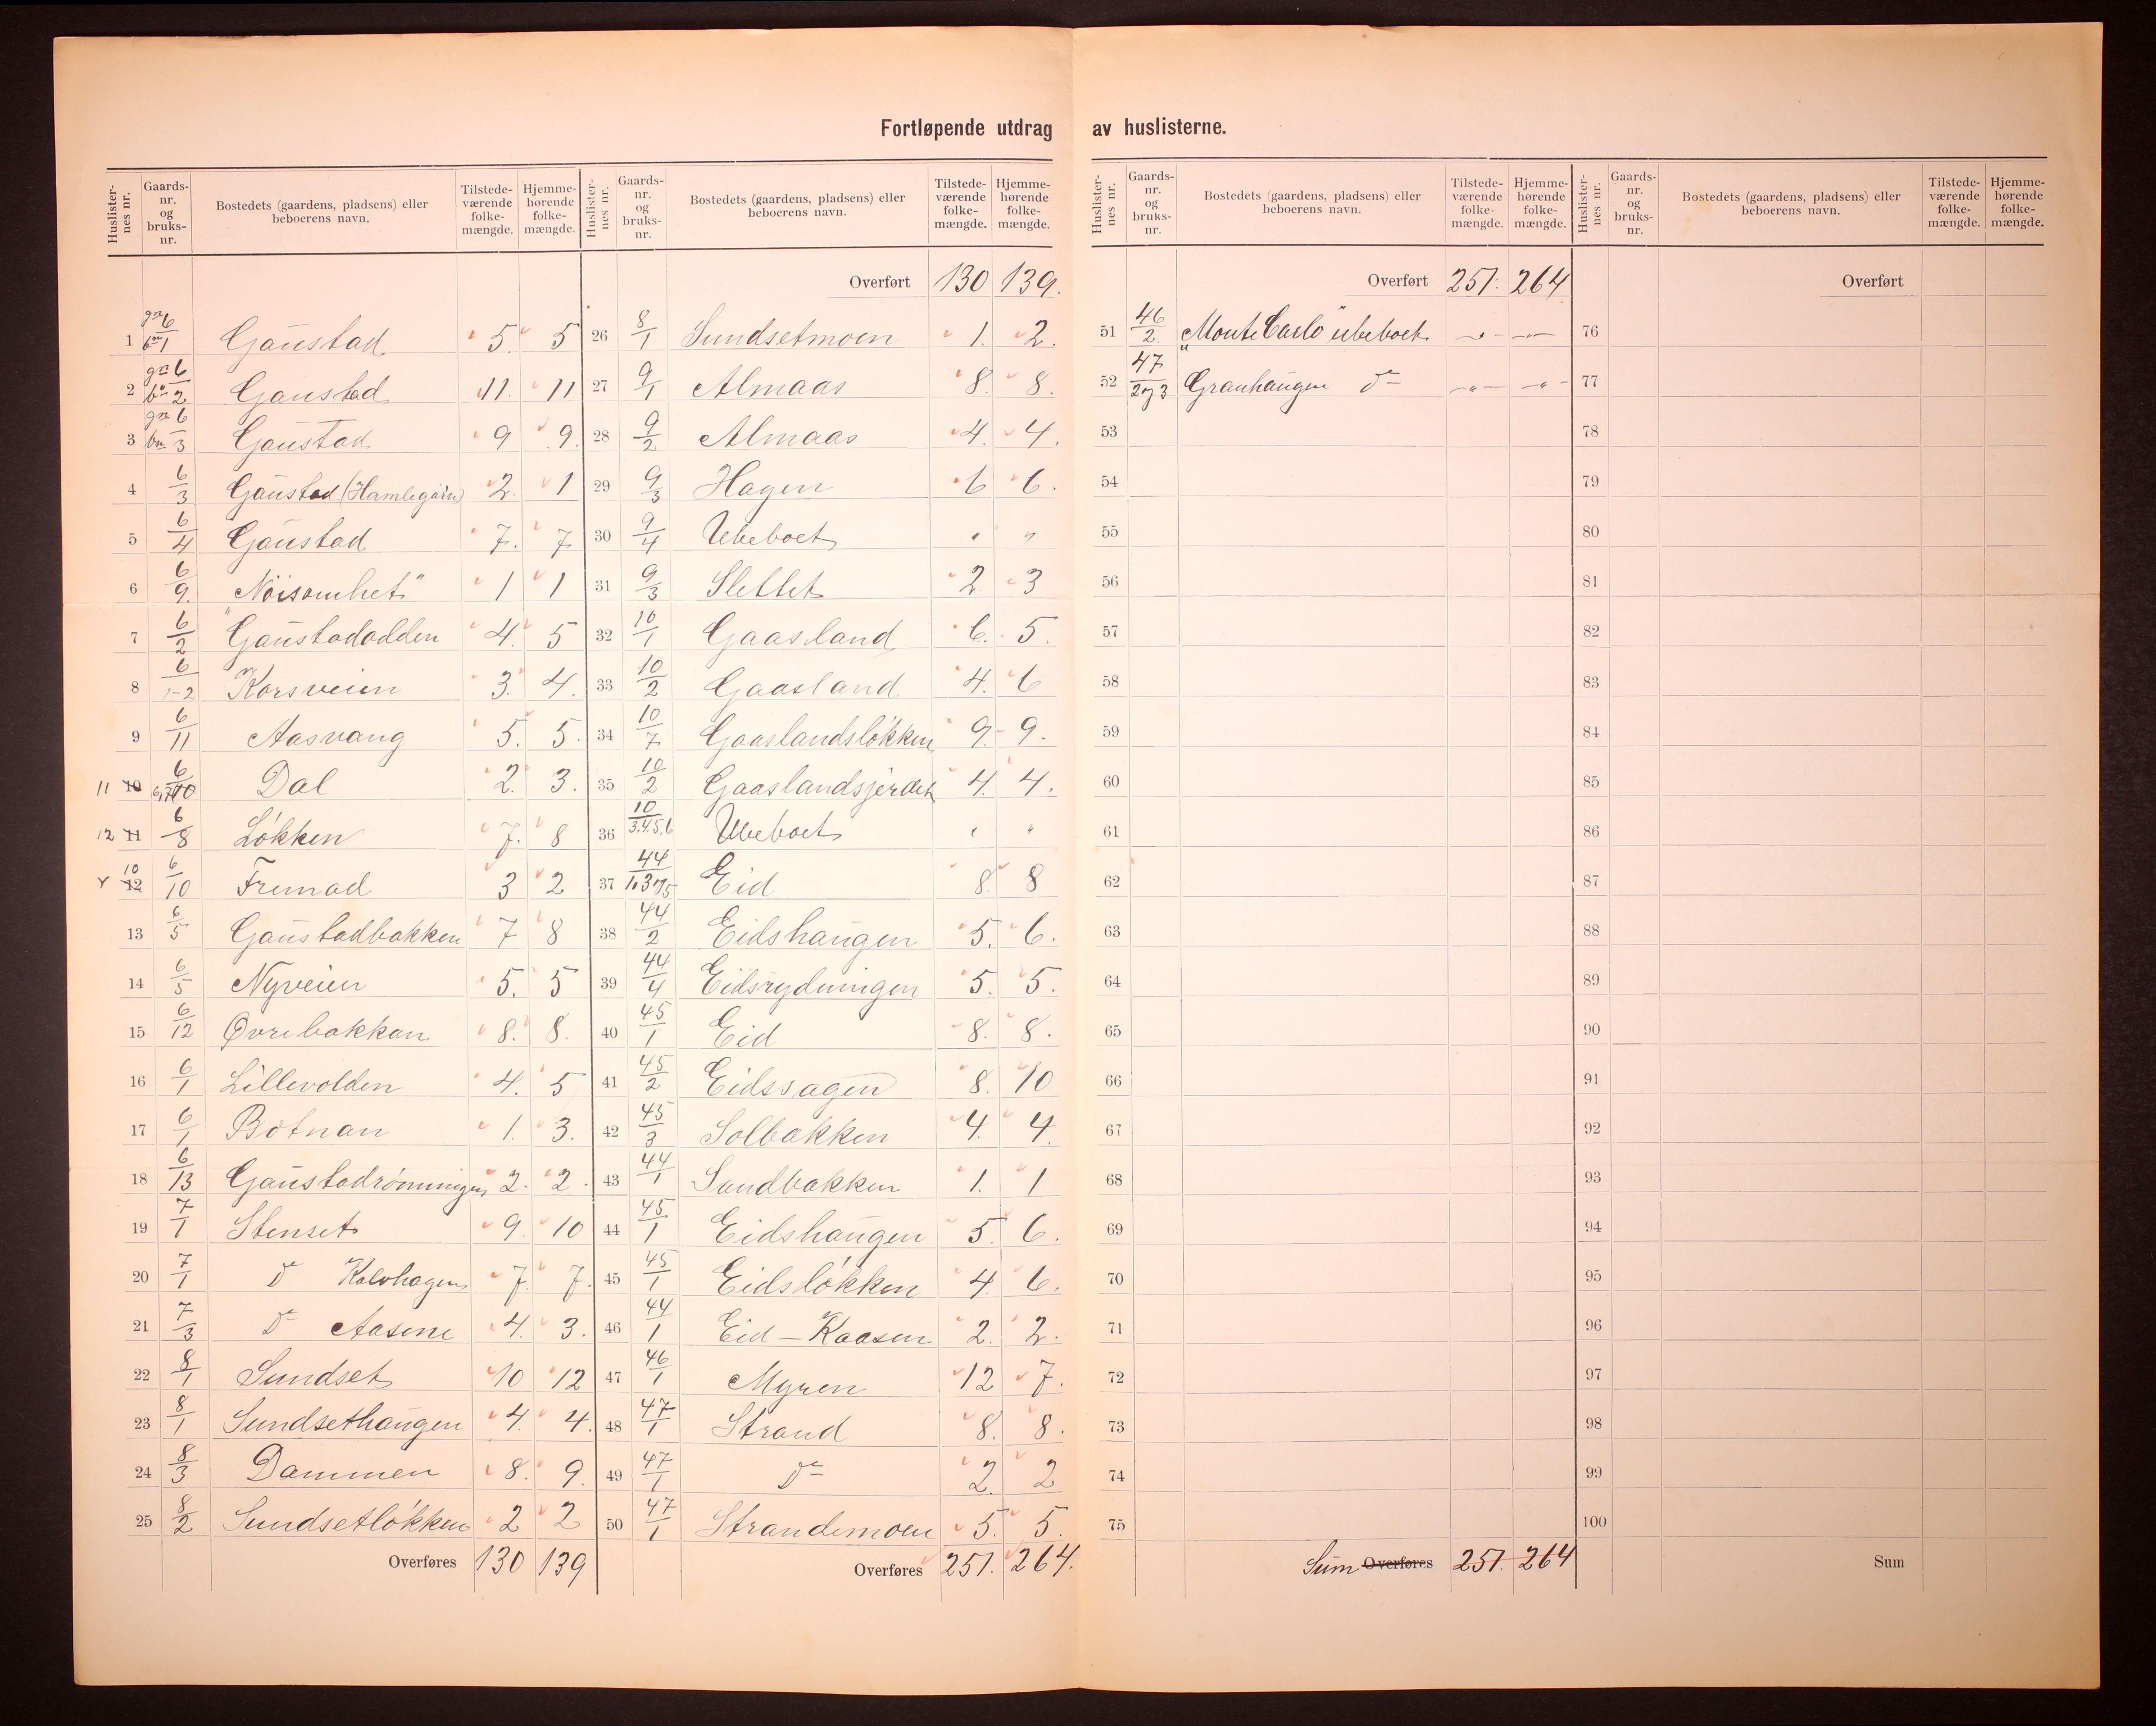 Fortløpende utdrag av huslisterne.
Huslisternes nr. Gaards-nr. og bruks-nr. Bostedets (gaardens, pladsens) eller beboerens navn. Tilstedeværende folkemængde. Hjemmehørende folkemængde.
1 gn 6/bn 1 Gaustad 5. 5
2 gn 6/bn 2 Gaustad 11. 11
3 gn 6/bn 3 Gaustad 9 9.
4 6/3 Gaustad (Hamlegårn) 2. 1
5 6/4 Gaustad 7. 7
6 6/9. "Nöisomhet" 1 1
7 6/2 Gaustadodden 4. 5
8 6/1-2 Korsveien 3. 4.
9 6/11 Aasvang 5. 5.
11 10 Dal 2. 3.
12 11 6/8 Løkken 7. 8
10 12 6/10 Fremad 3 2
13 6/5 Gaustadbakken 7 8
14 6/5 Nyveien 5. 5
15 6/12 Øvrebakkan 8. 8.
16 6/1 Lillevolden 4. 5
17 6/1 Botnan 1. 3.
18 6/13 Gaustadrønningen 2. 2.
19 7/1 Stenset 9. 10
20 7/1 Do Kalvhagen 7. 7.
21 7/3 Do Aasene 4. 3.
22 8/1 Sundset 10 12
23 8/1 Sundsethaugen 4. 4.
24 8/3 Dammen 8. 9.
25 8/2 Sundsetløkken 2 2
Overføres 130 139
Huslisternes nr. Gaards-nr. og bruks-nr. Bostedets (gaardens, pladsens) eller beboerens navn. Tilstedeværende folkemængde. Hjemmehørende folkemængde.
Overført 130 139.
26 8/1 Sundsetmoen 1. 2.
27 9/1 Almaas 8. 8.
28 9/2 Almaas 4. 4.
29 9/3 Hagen 6 6.
30 9/4 Ubeboet " "
31 9/3 Slettet 2. 3
32 10/1 Gaasland 6. 5.
33 10/2 Gaasland 4. 6
34 10/7 Gaaslandsløkken 9. 9.
35 10/2 Gaaslandsjerdet 4. 4.
36 10/3.4.5.6 Ubeboet " "
37 44/1,3og5 Eid 8. 8
38 44/2 Eidshaugen 5. 6.
39 44/4 Eidsrydningen 5. 5.
40 45/1 Eid 8. 8.
41 45/2 Eidssagen 8. 10
42 45/3 Solbakken 4. 4.
43 44/1 Sandbakken 1. 1
44 45/1 Eidshaugen 5. 6.
45 45/1 Eidsløkken 4. 6.
46 44/1 Eid - Kaasen 2. 2.
47 46/1 Myren 12 7.
48 47/1 Strand 8. 8.
49 47/1 Do 2. 2
50 47/1 Strandemoen 5. 5.
Overføres 251. 264.
Huslisternes nr. Gaards-nr. og bruks-nr. Bostedets (gaardens, pladsens) eller beboerens navn. Tilstedeværende folkemængde. Hjemmehørende folkemængde.
Overført 251. 264
51 46/2. "Monte Carlo" ubeboet -"- -"-
52 47/2og3 Granhaugen do -"- -"-
53
54
55
56
57
58
59
60
61
62
63
64
65
66
67
68
69
70
71
72
73
74
75
Sum Overføres 251. 264
Huslisternes nr. Gaards-nr. og bruks-nr. Bostedets (gaardens, pladsens) eller beboerens navn. Tilstedeværende folkemængde. Hjemmehørende folkemængde.
Overført
76
77
78
79
80
81
82
83
84
85
86
87
88
89
90
91
92
93
94
95
96
97
98
99
100
Sum